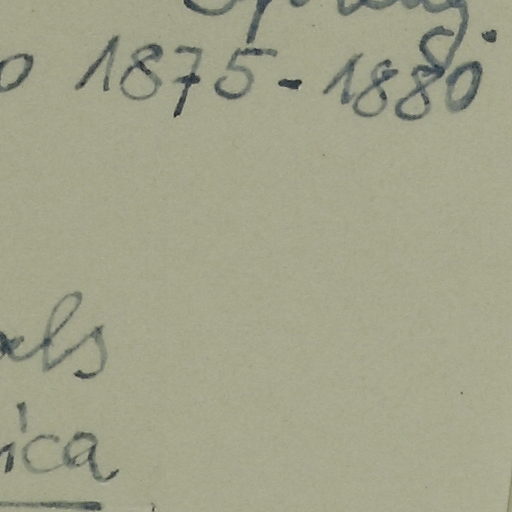 Spreng.
o 1875-1880
els
ica